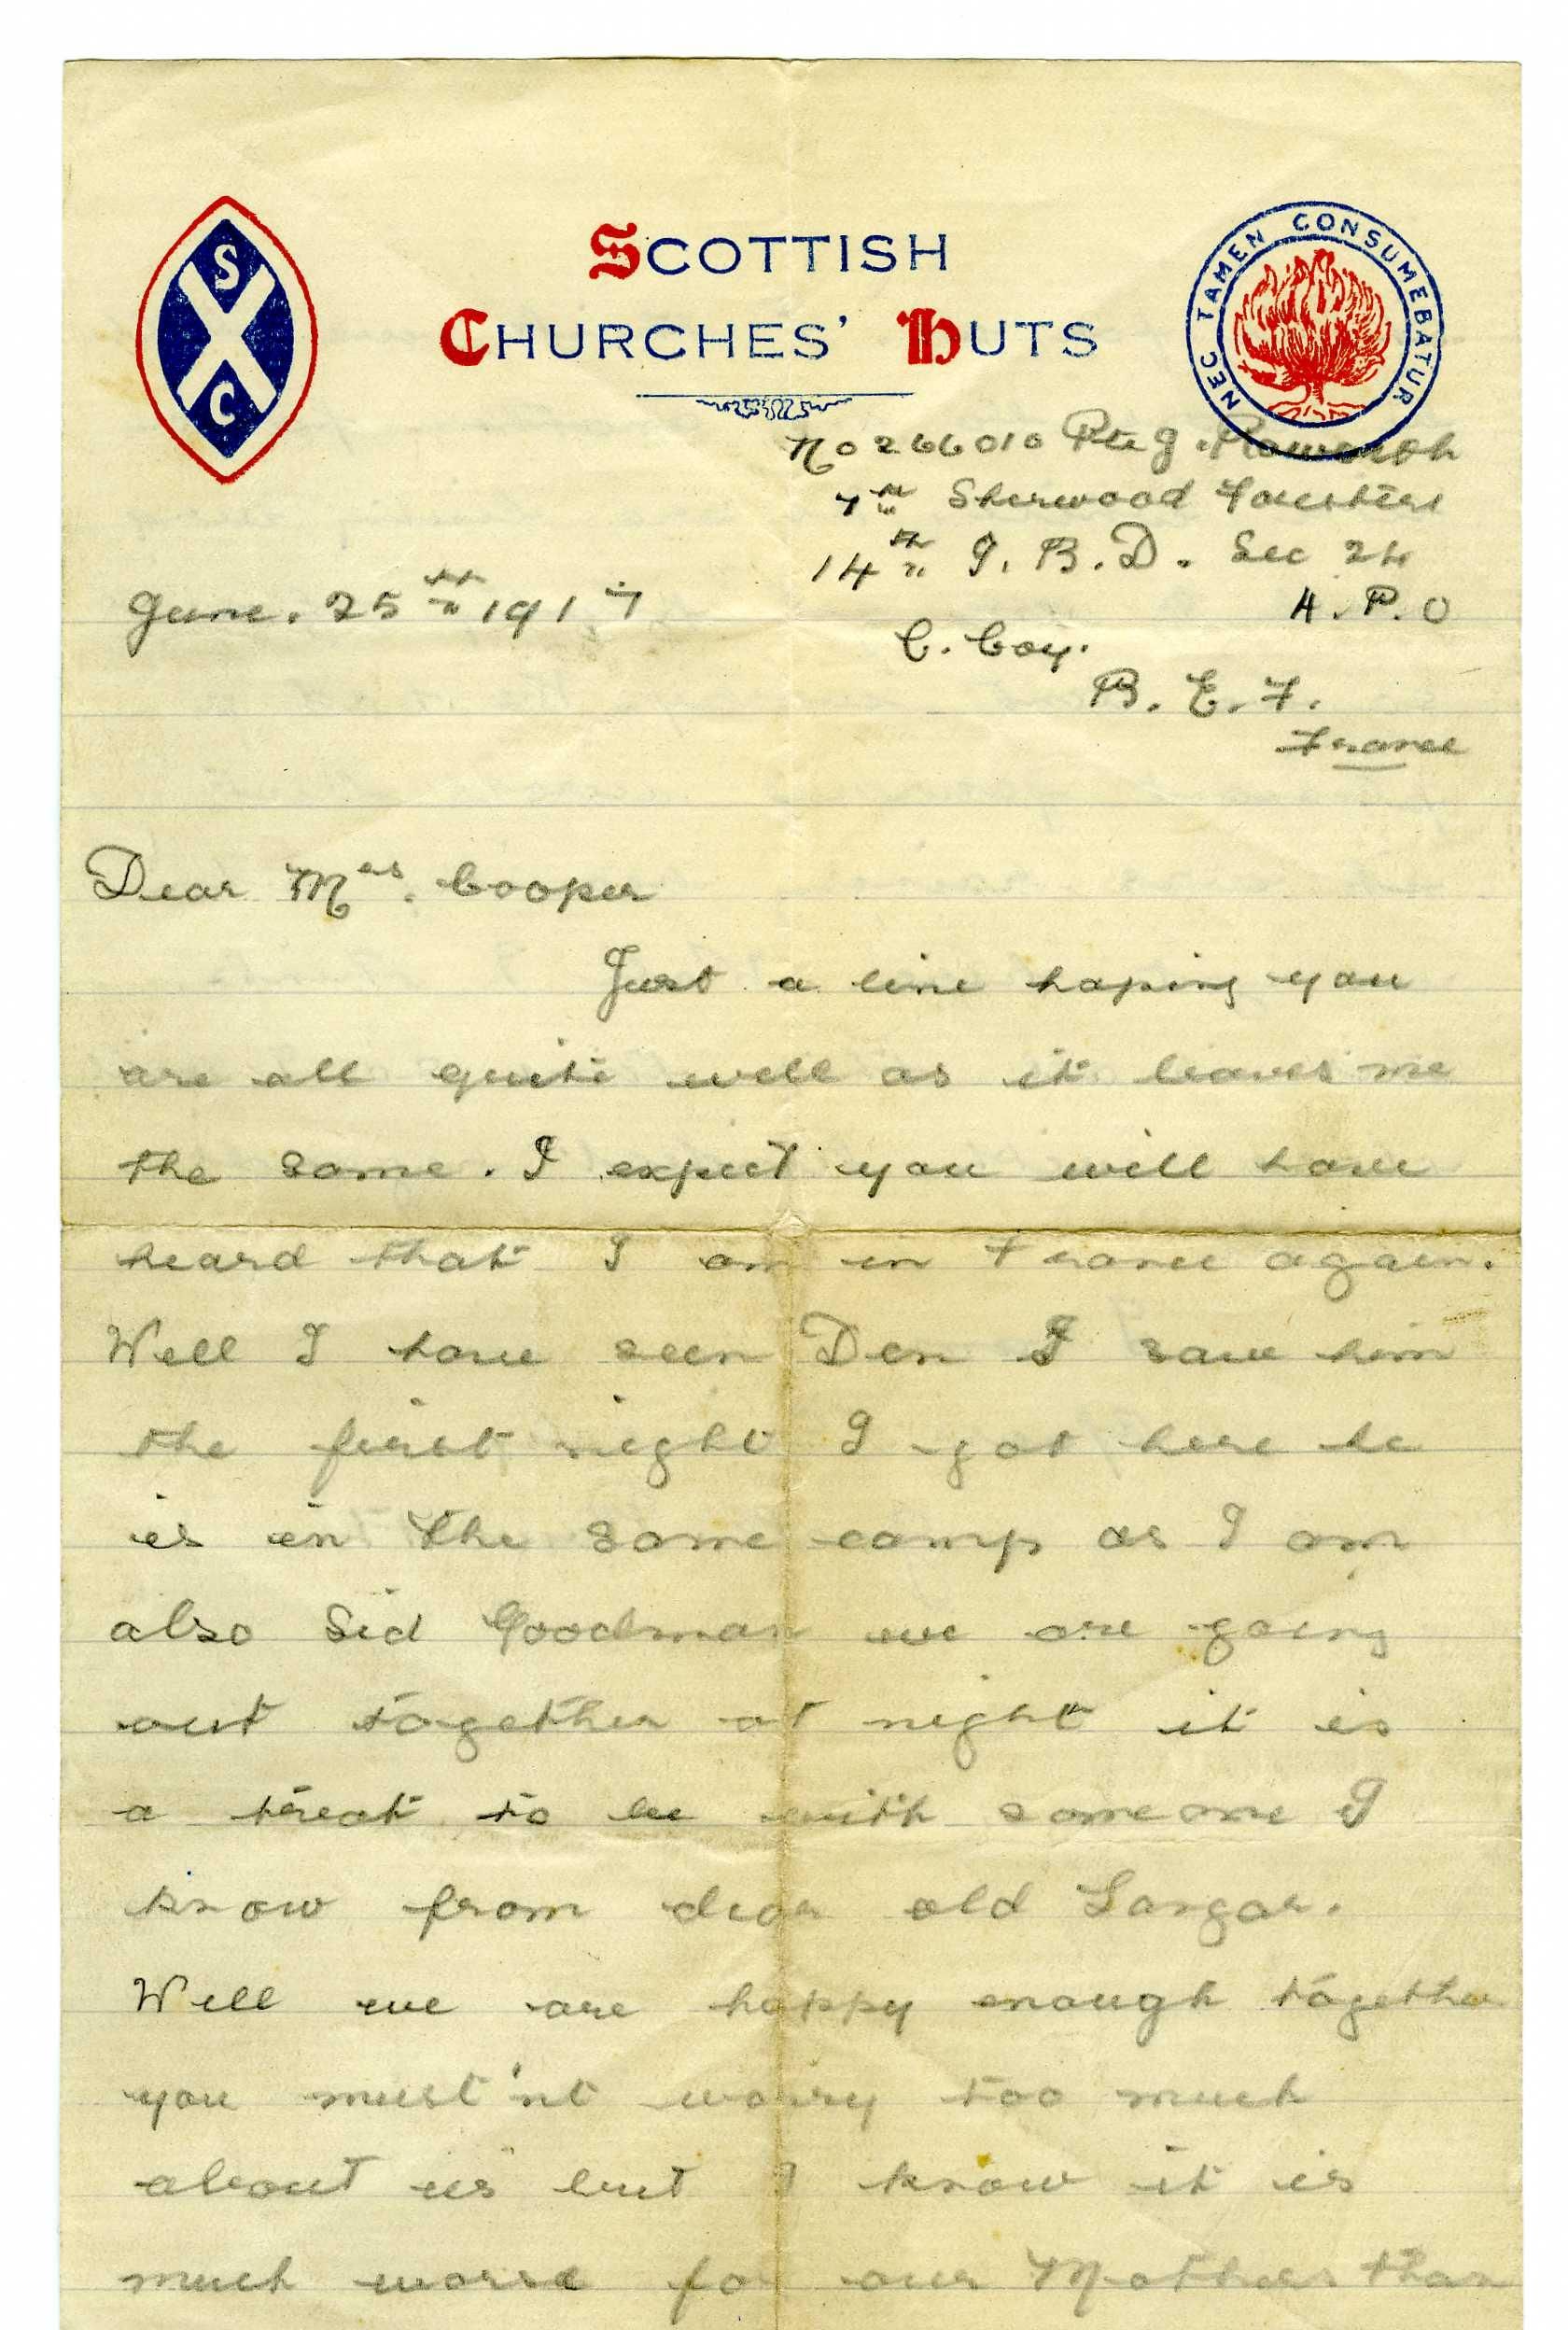 S
C
SCOTTISH
CHURCHES' HUTS
NEC TAMEN CONSUMEBATUR
No 266010 Pte J. Roworth
7th Sherwood Foresters
14th I. B. D. Sec 24
A. P. O
June. 25th 1917
C. Coy.
B. E. F.
France
Dear Mrs. Cooper
Just a line hoping you
are all quite well as it leaves me
the same. I expect you will have
heard that I am in France again.
Well I have seen Den I saw him
the first night I got here he
is in the same camp as I am
also Sid Goodman we are going
out together at night it is
a treat to be with someone I
know from dear old Langar.
Well we are happy enough together
you must'nt worry too much
about us but I know it is
much worse for our Mothers than